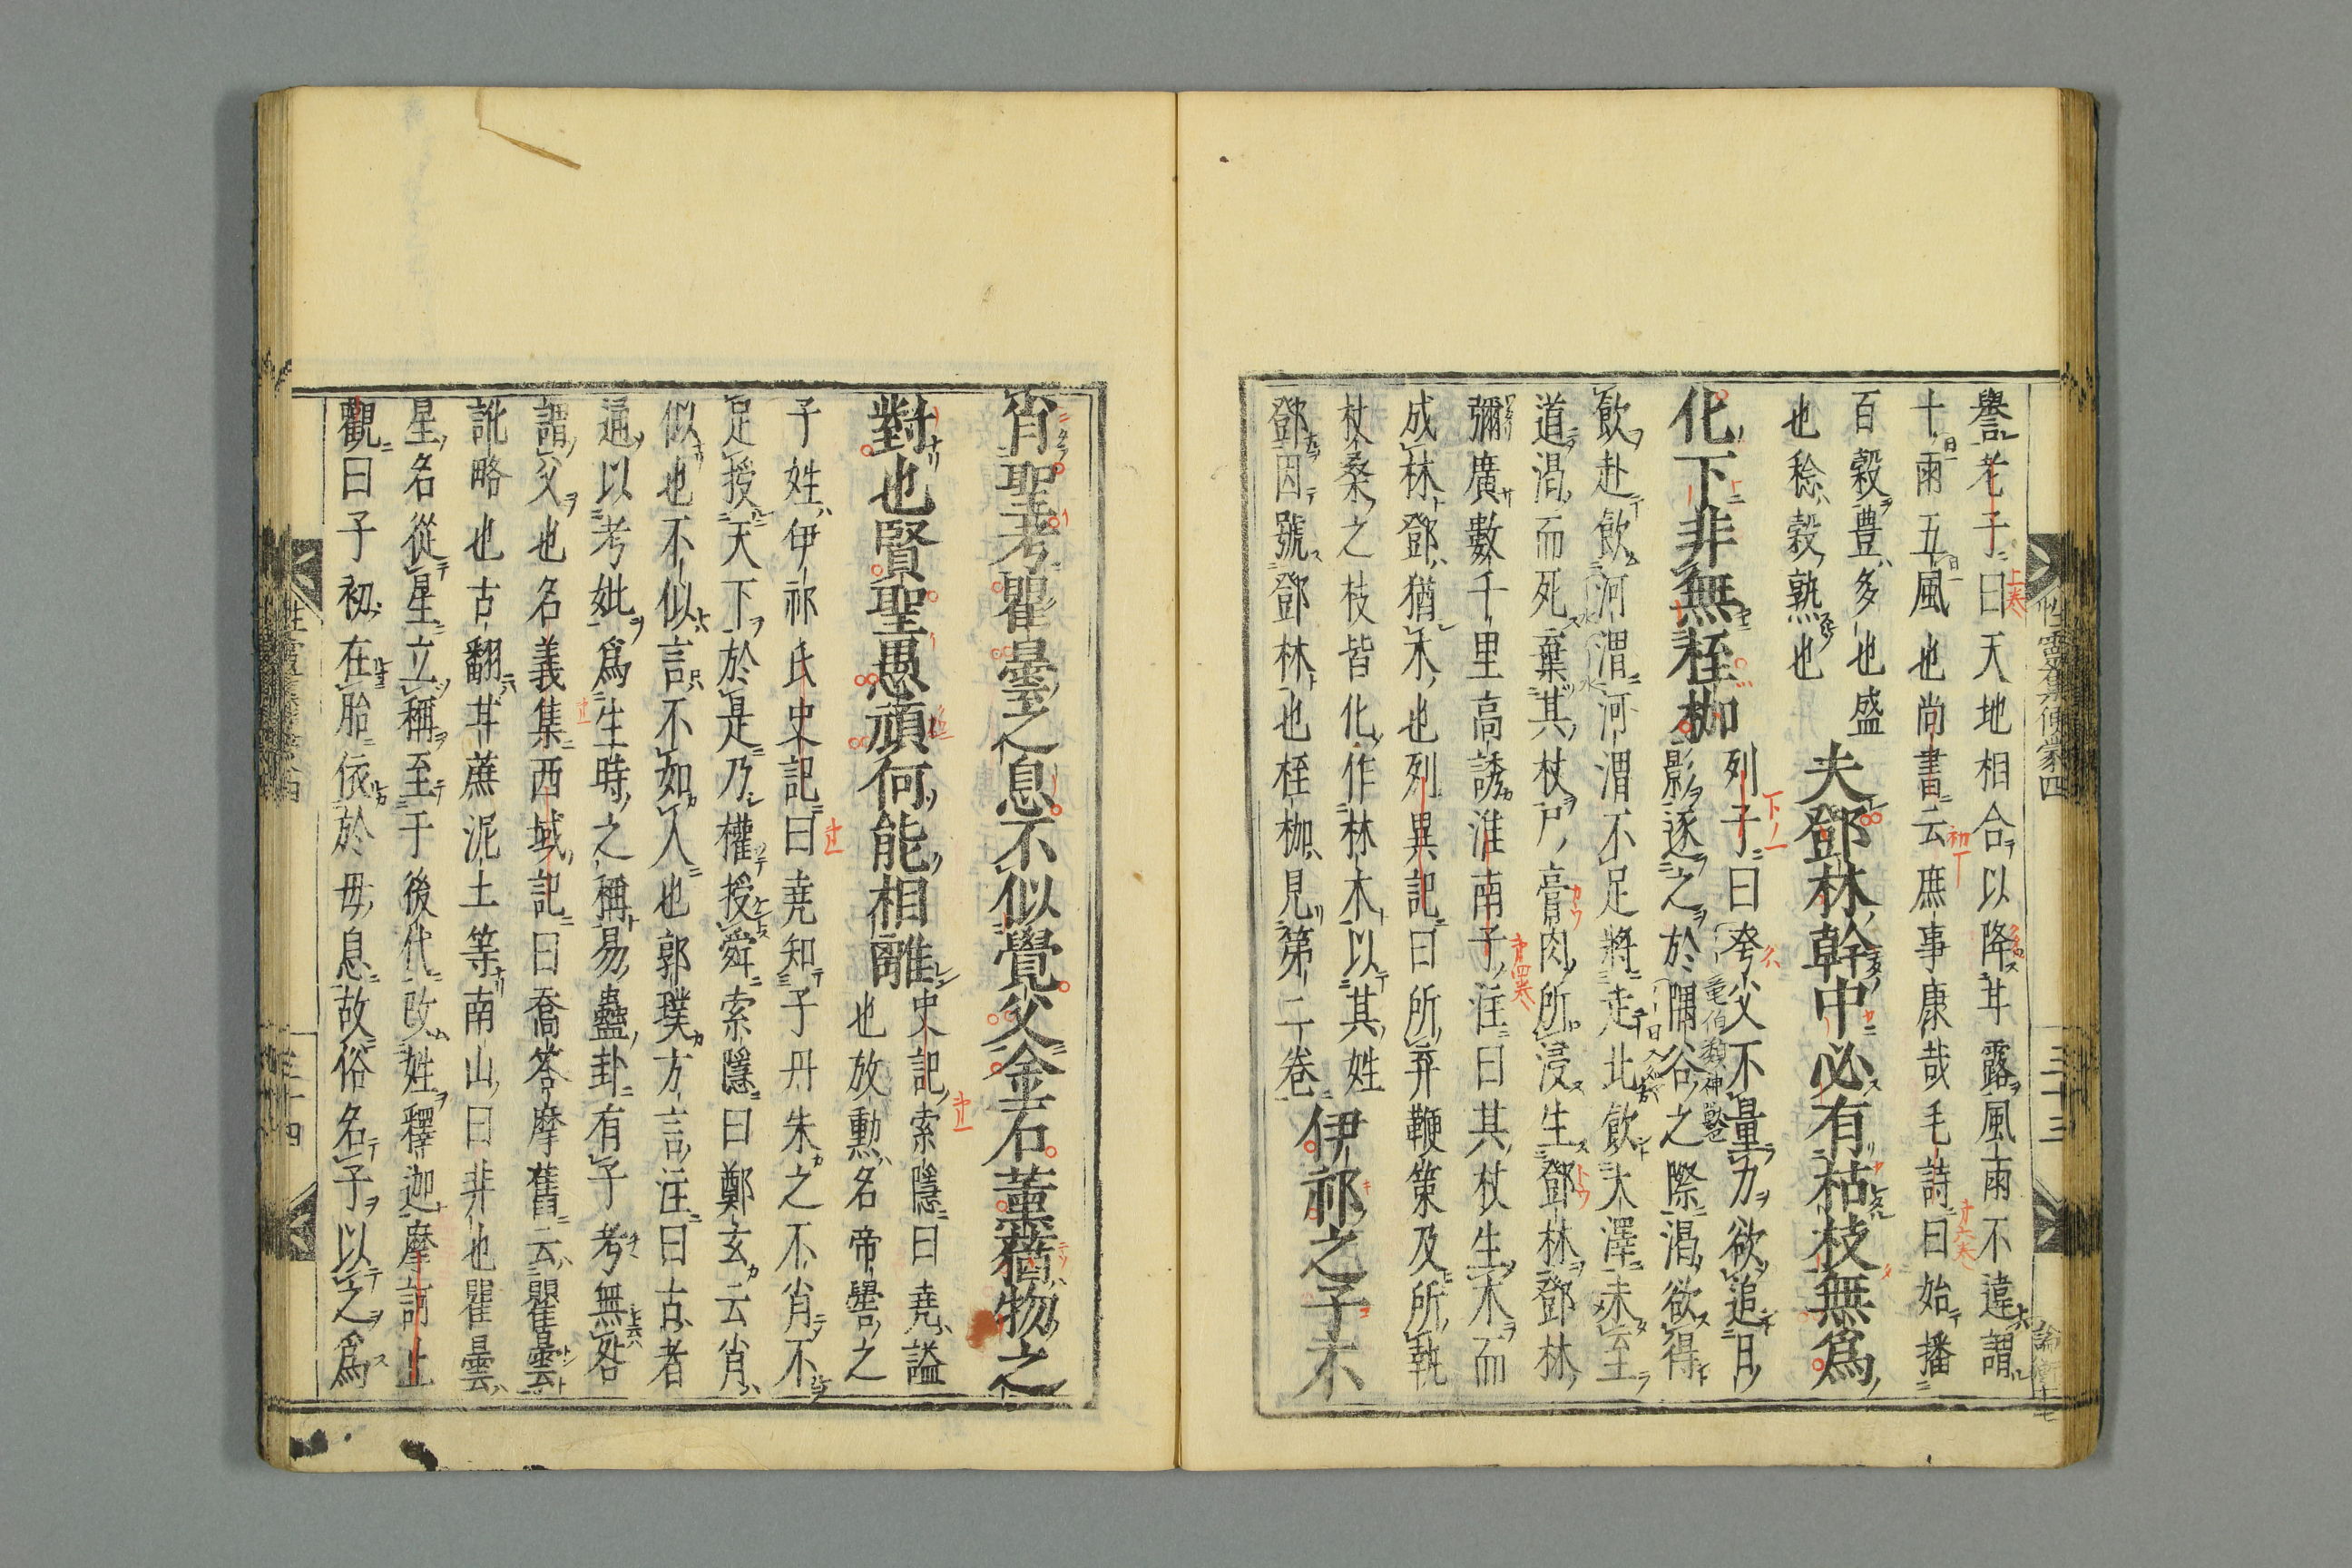 譽老子曰天地相合以降甘露風雨不違謂
十雨五風也尚書云庶事康哉毛詩曰始播
百穀豊多也盛
也稔穀熟也
夫鄧林幹中必有枯枝無爲
化下非無桎枷
列子曰夸父不量力欲追日
影逐之於隅谷之際渴欲得
飮赴飮河渭河渭不足將走北飮大澤未至
道渴而死棄其杖尸膏肉所浸生鄧林鄧林
彌廣數千里高誘淮南子注曰其杖生木而
成林鄧猶木也列異記曰所弃鞭策及所執
杖桑之枝皆化作林木以其姓
鄧因號鄧林也桎枷見第二卷
伊祁之子不
肖聖考瞿曇之息不似覺父金石薰蕕物之
對也賢聖愚頑何能相離
史記索隱曰堯謚
也放勲名帝嚳之
子姓伊祁氏史記曰堯知子丹朱之不肖不
足授天下於是乃權授舜索隱曰鄭玄云肖
似也不似言不如人也郭璞方言注曰古者
通以考妣爲生時之稱易蠱卦有子考無咎
謂父也名義集西域記曰喬答摩舊云瞿曇
訛略也古翻甘蔗泥土等南山曰非也瞿曇
星名從星立稱至于後代改姓釋迦摩訶止
觀曰子初在胎依於母息故俗名子以之爲
性靈集便蒙四
三十三
三十四